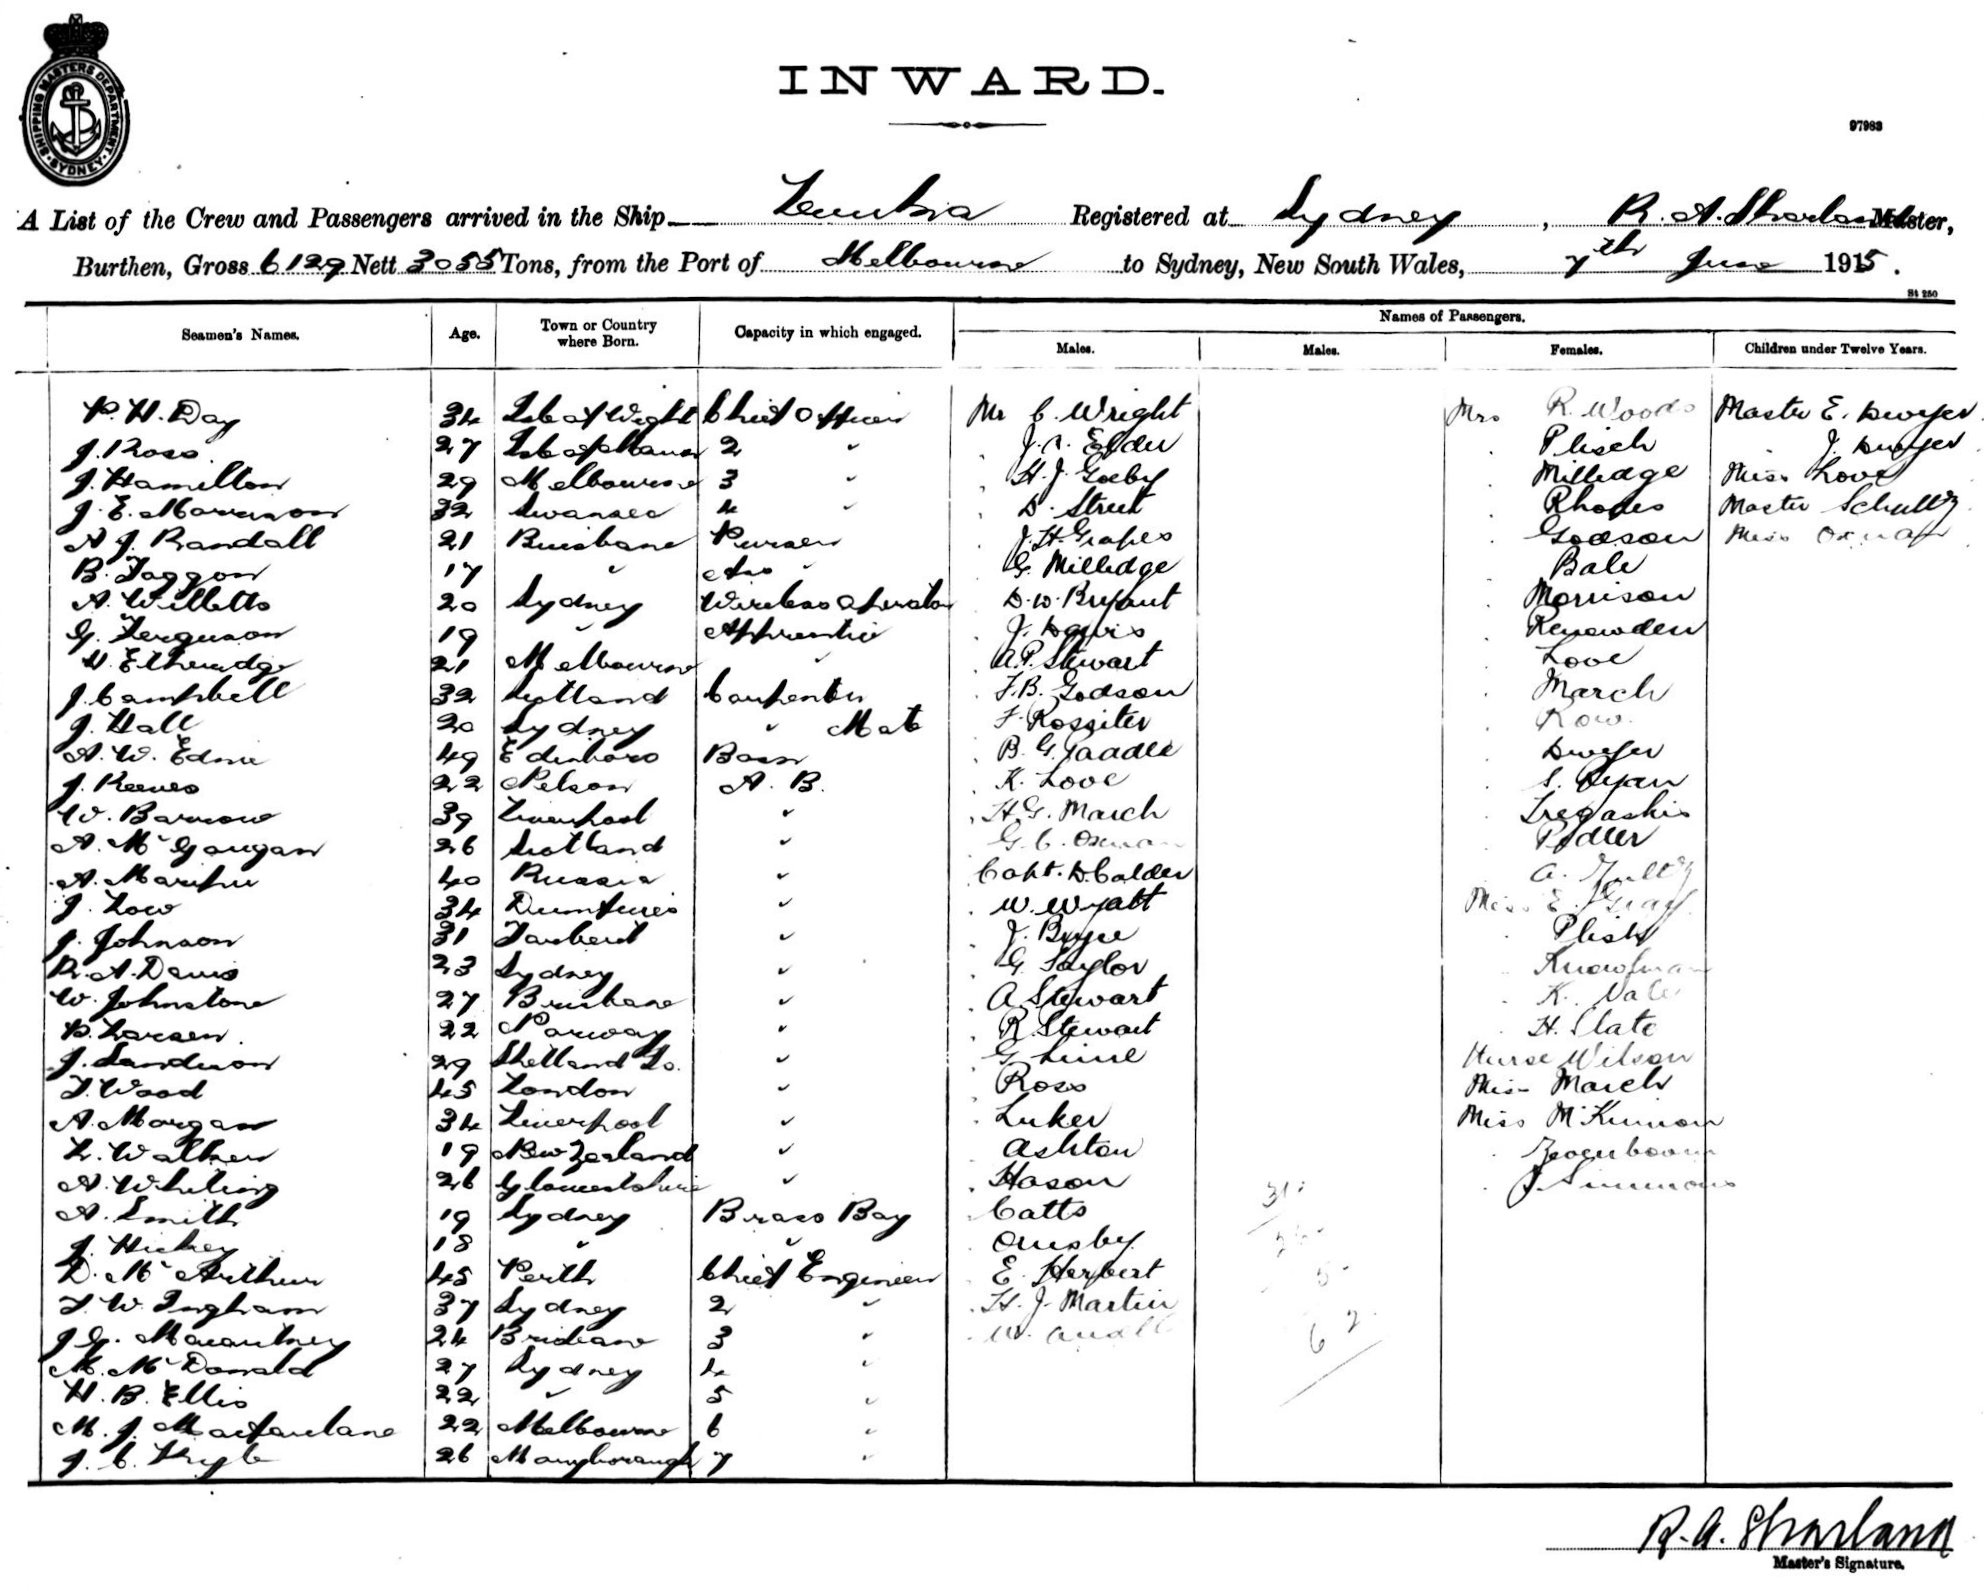 SHIPPING MASTERS DEPARTMENT. SYDNEY.
INWARD.
97983
A List of the Crew and Passengers arrived in the Ship Registered at Sydney, R. A. Sharland Master,
Burthen, Gross 6129 Nett 3055 Tons, from the Port of Melbourne to Sydney, New South Wales, 7th June 1915.
St 250
Seamen's Names. Age. Town or Country where Born. Capacity in which engaged. Names of Passengers.
Males. Males. Females. Children under Twelve Years.
P. H. Day 34 Isle of Wight Chief Officer Mr C. Wright Mrs R. Woods Master E. Dwyer
J. Ross 27 2 " " J. A. Elder " Plisch " J. Dwyer
J. Hamilton 29 Melbourne 3 " " H. J. " Milledge Miss Love
J. E. Morrison 32 Swansea 4 " " D. Street " Rhodes Master Schultz
A J. Randall 21 Brisbane Purser " J. H. Grapes " Godson Miss Oxnan
B. Taggon 17 " Ass " " G. Milledge " Bale
A. Willetts 20 Sydney Wireless Operator " D. W. Bryant " Morrison
G. Ferguson 19 " Apprentice " J. Davis "
H. Etheridge 21 Melbourne " " A. P. Stewart " Love
J. Campbell 32 Scotland Carpenter " F. B. Godson " March
J. Hall 20 Sydney " Mate " F. Rossiter " Row.
A. W. Edmie 49 Edinboro Bosn " B. G. " Dwyer
J. Reeves 22 Nelson A. B. " K. Love " S. Ryan
W. Barrow 39 Liverpool " " H. G. March
A. Mc Gougan 26 Scotland " " G. C. Oxnan " Pedler
A. 40 Russia " Capt. D. Calder " A.
J. Low 34 Dumfries " " W. Wyatt Miss E. Gray
J. Johnson 31 Tarbert " " J. " Plisch
R. A. Davis 23 Sydney " " G. Taylor "
W. Johnstone 27 Brisbane " " A. Stewart " K. Vale
P. Larsen. 22 Norway " " R. Stewart " H. Slate
J. Sanderson 29 Shetland Is. " " G. Nurse Wilson
T. Wood 45 London " " Ross Miss March
A. Morgan 34 Liverpool " " Luker Miss McKinnon
L. Walker 19 New Zealand " " Ashton "
A. Whiting 26 Gloucestshire " " Hason " J Simmons
A. Smith 19 Sydney Brass Boy " Catts 31
J. Hickey 18 " " " Ormsby 26
D. Mc Arthur 45 Perth Chief Engineer " E. Herbert 5
T. W. Ingham 37 Sydney 2 " " H. J. Martin
J. G. Macartney 24 Brisbane 3 " " W. 62
M. Mc Donald 27 Sydney 4 "
H. B. Ellis 22 " 5 "
M. J. Macfarlane 22 Melbourne 6 "
J. C. 26 Maryborough 7 "
R. A. Sharland
Master's Signature.